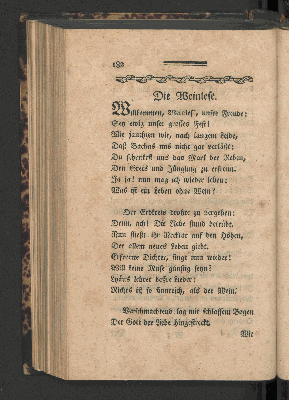 182
Die Weinlese.
Willkommen, Weinles', unsre Freude!
Sey ewig unser grosses Fest!
Wir jauchzen wie, nach langem Leide,
Daß Bachus uns nicht gar verläßt!
Du schenkest uns das Mark der Reben,
Den Greis und Jüngling zu erfreun.
Ja ja! nun mag ich wieder leben:
Was ist ein Leben ohne Wein?
Der Erdkreis drohte zu vergehen:
Denn, ach! Die Rebe stund betrübt.
Nun fließt ihr Necktar auf den Höhen,
Der allem neues Leben giebt.
Erfrorne Dichter, singt nun wieder!
Will keine Muse günstig seyn?
Lyäus lehret beßre Lieder:
Nichts ist so sinnreich, als der Wein.
Verschmachtend lag mit schlaffem Bogen
Der Gott der Liebe hingestreckt.
Wie